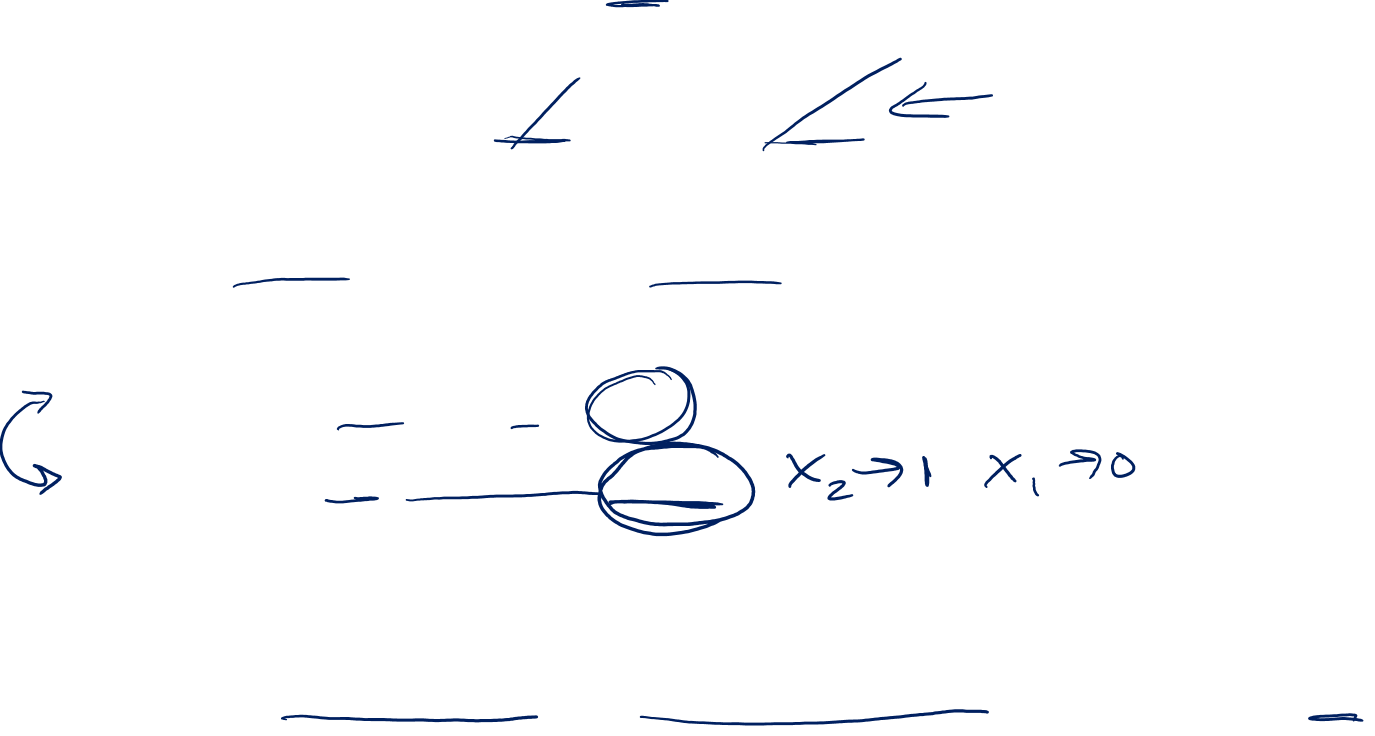 X₂→1 X₁→0